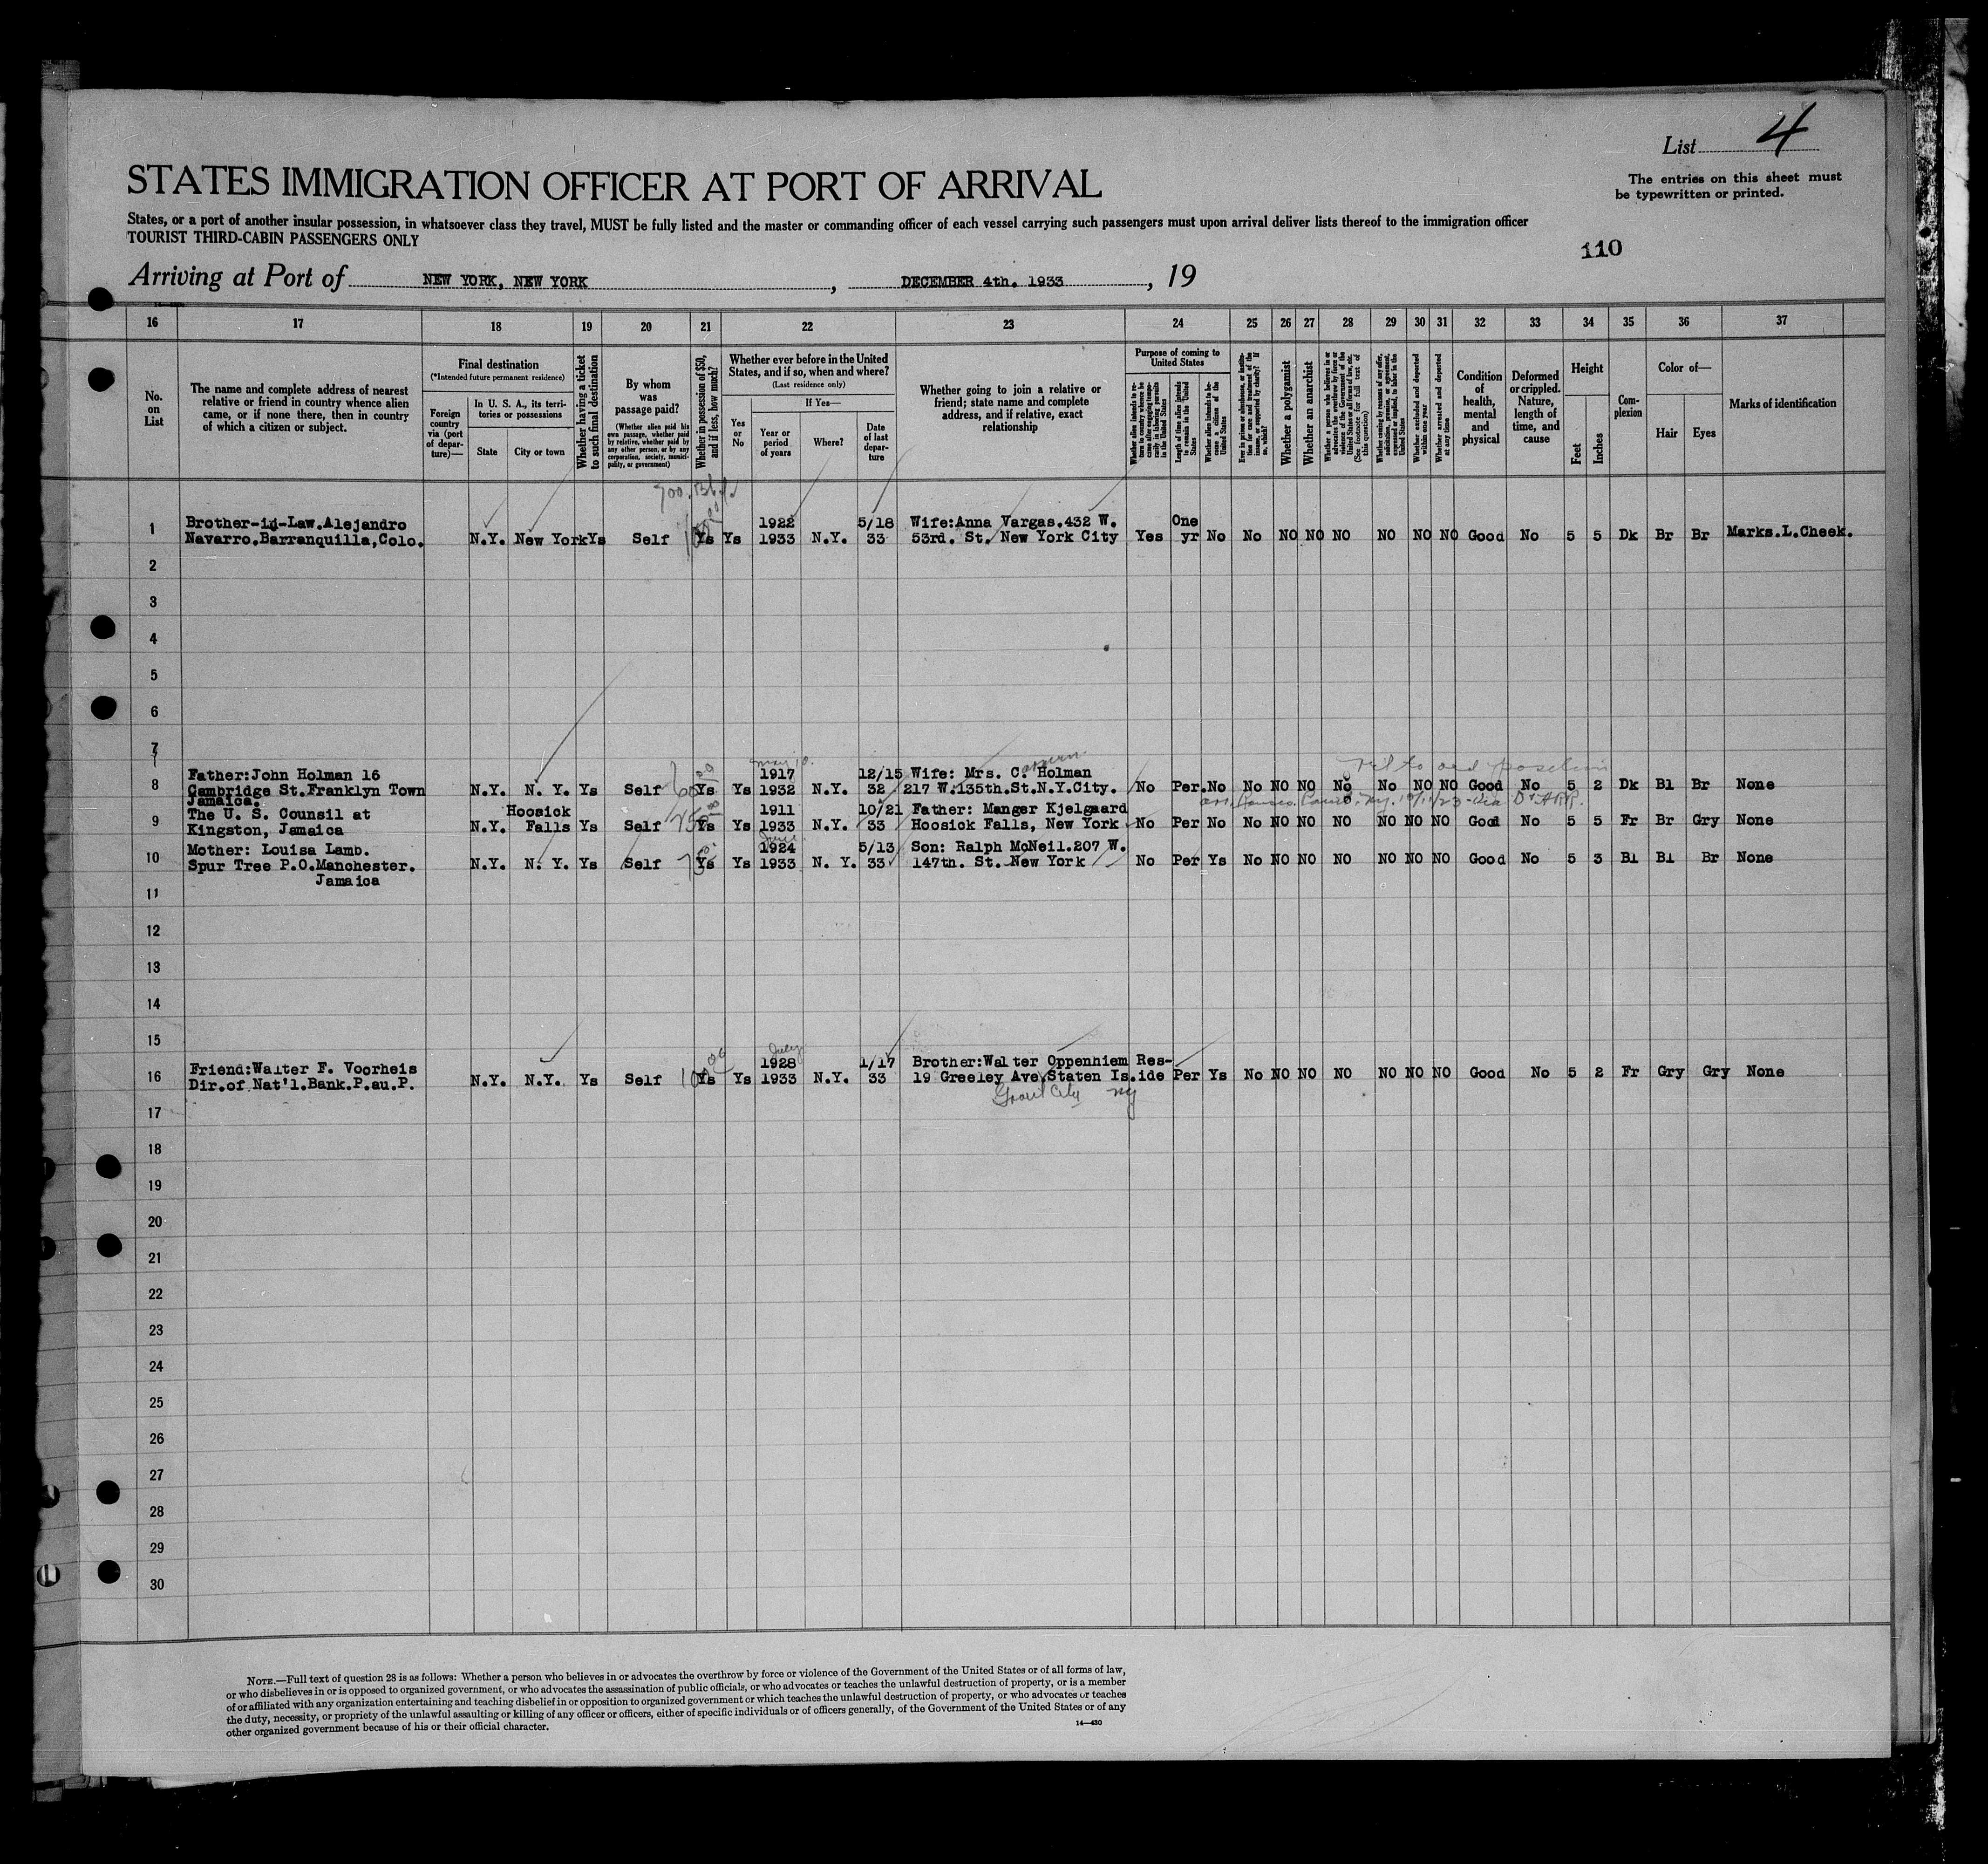 List 4
STATES IMMIGRATION OFFICER AT PORT OF ARRIVAL
The entries on this sheet must
be typewritten or printed.
States, or a port of another insular possession, in whatsoever class they travel, MUST be fully listed and the master or commanding officer of each vessel carrying such passengers must upon arrival deliver lists thereof to the immigration officer
TOURIST THIRD-CABIN PASSENGERS ONLY
110
Arriving at Port of NEW YORK, NEW YORK, DECEMBER 4th. 1933, 19
16 17 18 19 20 21 22 23 24 25 26 27 28 29 30 31 32 33 34 35 36 37
No. on List
The name and complete address of nearest relative or friend in country whence alien came, or if none there, then in country of which a citizen or subject.
Final destination
(*Intended future permanent residence)
Foreign country via (port of departure)—
In U. S. A., its territories or possessions
State
City or town
Whether having a ticket to such final destination
By whom was passage paid?
(Whether alien paid his own passage, whether paid by relative, whether paid by any other person, or by any corporation, society, municipality, or government)
Whether in possession of $50, and if less, how much?
Whether ever before in the United States, and if so, when and where?
(Last residence only)
Yes or No
If Yes—
Year or period of years
Where?
Date of last departure
Whether going to join a relative or friend; state name and complete address, and if relative, exact relationship
Purpose of coming to United States
Whether alien intends to return to country whence he came after engaging temporarily in laboring pursuits in the United States
Length of time alien intends to remain in the United States
Whether alien intends to become a citizen of the United States
Ever in prison or almshouse, or institution for care and treatment of the insane, or supported by charity? If so, which?
Whether a polygamist
Whether an anarchist
Whether a person who believes in or advocates the overthrow by force or violence of the Government of the United States or of all forms of law, etc. (See footnote for full text of this question)
Whether coming by reasons of any offer, solicitation, promise, or agreement, expressed or implied, to labor in the United States
Whether excluded and deported within one year
Whether arrested and deported at any time
Condition of health, mental and physical
Deformed or crippled. Nature, length of time, and cause
Height
Feet
Inches
Complexion
Color of—
Hair
Eyes
Marks of identification
1 Brother-in-Law.Alejandro Navarro.Barranquilla,Colo. N.Y. New York Ys Self Ys Ys 1922 1933 N.Y. 5/18 33 Wife:Anna Vargas.432 W. 53rd. St. New York City Yes One yr No No NO NO NO NO NO NO Good No 5 5 Dk Br Br Marks.L.Cheek.
2
3
4
5
6
7
8 Father:John Holman 16 Cambridge St.Franklyn Town Jamaica. N.Y. N. Y. Ys Self Ys Ys 1917 1932 N.Y. 12/15 32 Wife: Mrs. C. Holman 217 W.135th.St.N.Y.City. No Per. No No NO NO No No NO NO Good No 5 2 Dk Bl Br None
9 The U. S. Counsil at Kingston, Jamaica N.Y. Hoosick Falls Ys Self Ys Ys 1911 1933 N.Y. 10/21 33 Father: Manger Kjelgaard Hoosick Falls, New York No Per No No NO NO NO NO NO NO Good No 5 5 Fr Br Gry None
10 Mother: Louisa Lamb. Spur Tree P.O.Manchester. Jamaica N.Y. N. Y. Ys Self Ys Ys 1924 1933 N. Y. 5/13 33 Son: Ralph McNeil.207 W. 147th. St. New York No Per Ys No NO NO NO NO NO NO Good No 5 3 Bl Bl Br None
11
12
13
14
15
16 Friend:Walter F. Voorheis Dir.of Nat'l.Bank.P.au.P. N.Y. N.Y. Ys Self Ys Ys July 1928 1933 N.Y. 1/17 33 Brother:Walter Oppenhiem Res- 19 Greeley Ave.Staten Is.ide Per Ys No NO NO NO NO NO NO Good No 5 2 Fr Gry Gry None
Grant City NY
17
18
19
20
21
22
23
24
25
26
27
28
29
30
NOTE.—Full text of question 28 is as follows: Whether a person who believes in or advocates the overthrow by force or violence of the Government of the United States or of all forms of law,
or who disbelieves in or is opposed to organized government, or who advocates the assassination of public officials, or who advocates or teaches the unlawful destruction of property, or is a member
of or affiliated with any organization entertaining and teaching disbelief in or opposition to organized government or which teaches the unlawful destruction of property, or who advocates or teaches
the duty, necessity, or propriety of the unlawful assaulting or killing of any officer or officers, either of specific individuals or of officers generally, of the Government of the United States or of any
other organized government because of his or their official character.
14—430